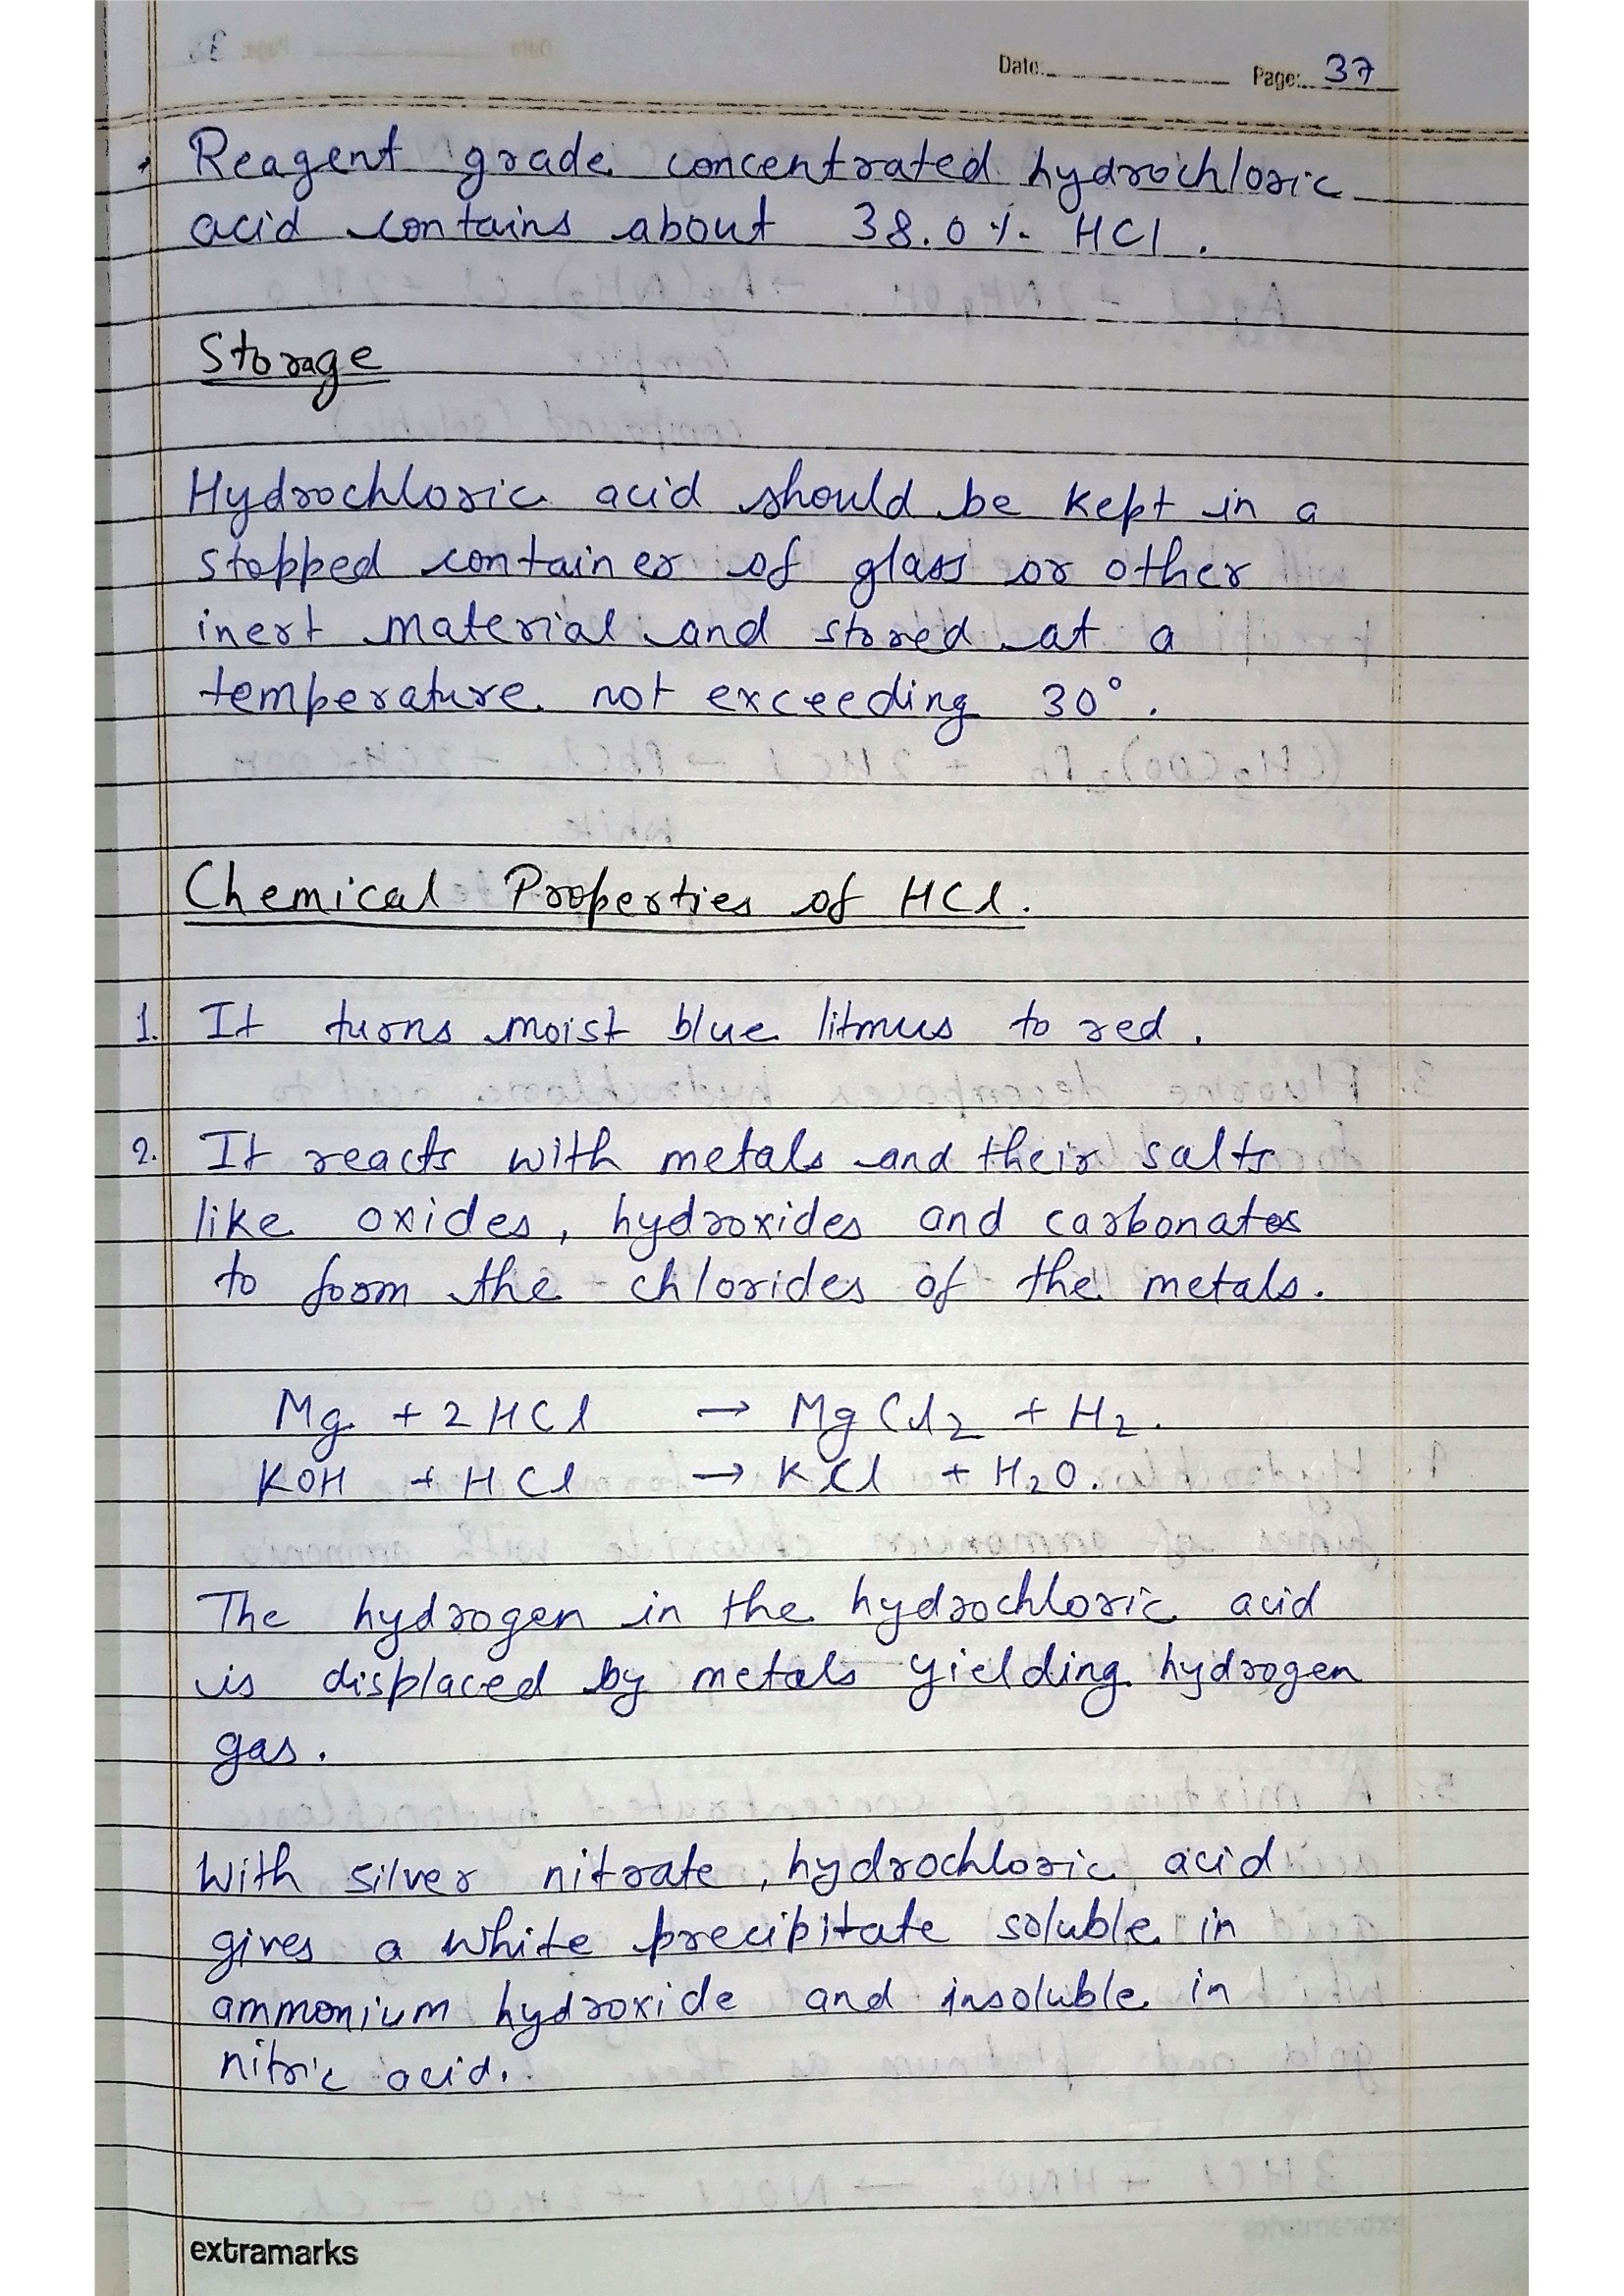 Date: Page: 37
• Reagent grade concentrated hydrochloric
acid contains about 38.0 % HCl.
Storage
Hydrochloric acid should be kept in a
stopped container of glass or other
inert material and stored at a
temperature not exceeding 30°.
Chemical Properties of HCl.
1. It turns moist blue litmus to red.
2. It reacts with metals and their salts
like oxides, hydroxides and carbonates
to form the chlorides of the metals.
Mg + 2HCl → MgCl2 + H2.
KOH + HCl → KCl + H2O.
The hydrogen in the hydrochloric acid
is displaced by metals yielding hydrogen
gas.
With silver nitrate, hydrochloric acid
gives a white precipitate soluble in
ammonium hydroxide and insoluble in
nitric acid.
extramarks